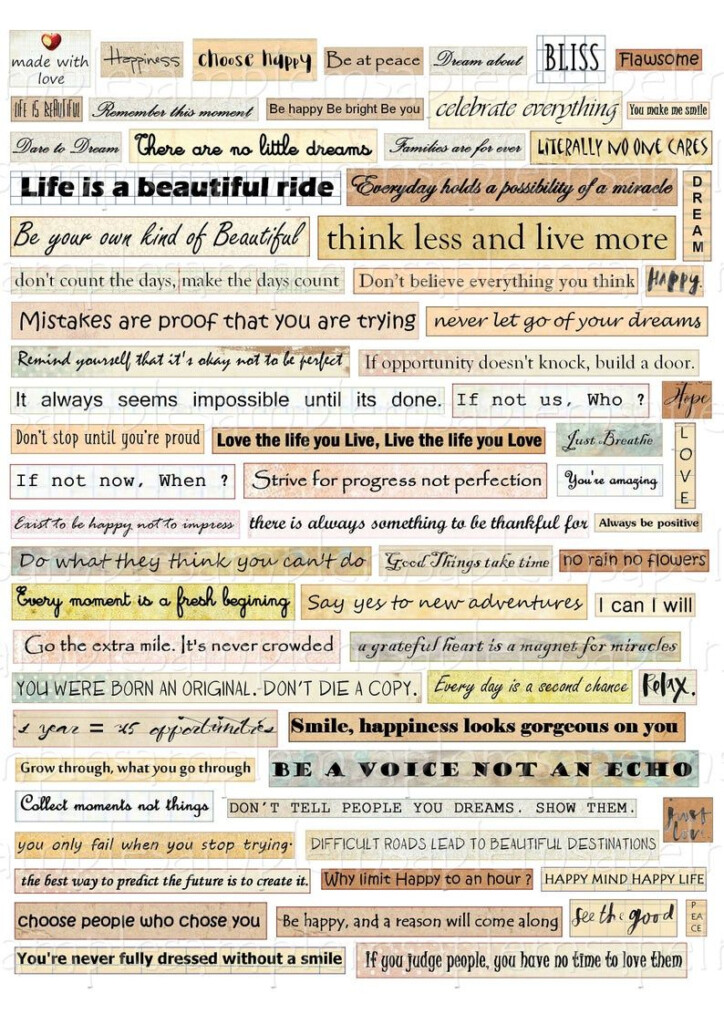 made with
love
Happiness
choose happy
Be at peace
Dream about
BLISS
Flawsome
LIFE IS BEAUTIFUL
Remember this moment
Be happy Be bright Be you
celebrate everything
You make me smile
Dare to Dream
There are no little dreams
Families are for ever
LITERALLY NO ONE CARES
Life is a beautiful ride
Everyday holds a possibility of a miracle
DREAM
Be your own kind of Beautiful
think less and live more
don't count the days, make the days count
Don't believe everything you think
Happy.
Mistakes are proof that you are trying
never let go of your dreams
Remind yourself that it's okay not to be perfect
If opportunity doesn't knock, build a door.
It always seems impossible until its done.
If not us, Who ?
Hope
Don't stop until you're proud
Love the life you Live, Live the life you Love
Just Breathe
LOVE
If not now, When ?
Strive for progress not perfection
You're amazing
Exist to be happy not to impress
there is always something to be thankful for
Always be positive
Do what they think you can't do
Good Things take time
no rain no flowers
Every moment is a fresh begining
Say yes to new adventures
I can I will
Go the extra mile. It's never crowded
a grateful heart is a magnet for miracles
YOU WERE BORN AN ORIGINAL. DON'T DIE A COPY.
Every day is a second chance
Relax.
1 year = opportunities
Smile, happiness looks gorgeous on you
Grow through, what you go through
BE A VOICE NOT AN ECHO
Collect moments not things
DON'T TELL PEOPLE YOU DREAMS. SHOW THEM.
just
you only fail when you stop trying.
DIFFICULT ROADS LEAD TO BEAUTIFUL DESTINATIONS
the best way to predict the future is to create it.
Why limit Happy to an hour ?
HAPPY MIND HAPPY LIFE
choose people who chose you
Be happy, and a reason will come along
see the good
PEACE
You're never fully dressed without a smile
If you judge people, you have no time to love them